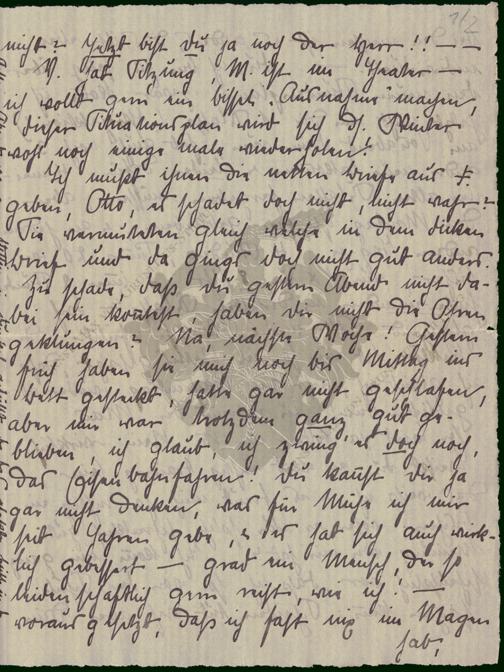 nicht? Jetzt bist du ja noch der Herr!! — —
V. hat Sitzung, M. ist im Theater —
ich wollt gern ein bissel „Ausnahme" machen,
dieser Situationsplan wird sich d. Winter
wohl noch einige male wiederholen!
Ich mußt ihnen die netten Briefe aus F.
geben, Otto, es schadet doch nicht, nicht wahr?
Sie vermuteten gleich welche in dem dicken
Brief und da gings doch nicht gut anders.
Zu schade, daß du gestern Abend nicht da-
bei sein konntest, haben dir nicht die Ohren
geklungen? Na, nächste Woche! Gestern
früh haben sie mich noch bis Mittag ins
Bett gesteckt, hatte gar nicht geschlafen,
aber mir war trotzdem ganz gut ge-
blieben, ich glaub, ich zwing' es doch noch,
das Eisenbahnfahren! du kannst dir ja
gar nicht denken, was für Mühe ich mir
seit Jahren gebe, u. es hat sich auch wirk-
lich gebessert — grad ein Mensch, der so
leidenschaftlich gern reist, wie ich! —
vorausgesetzt, daß ich fast nix im Magen
hab,